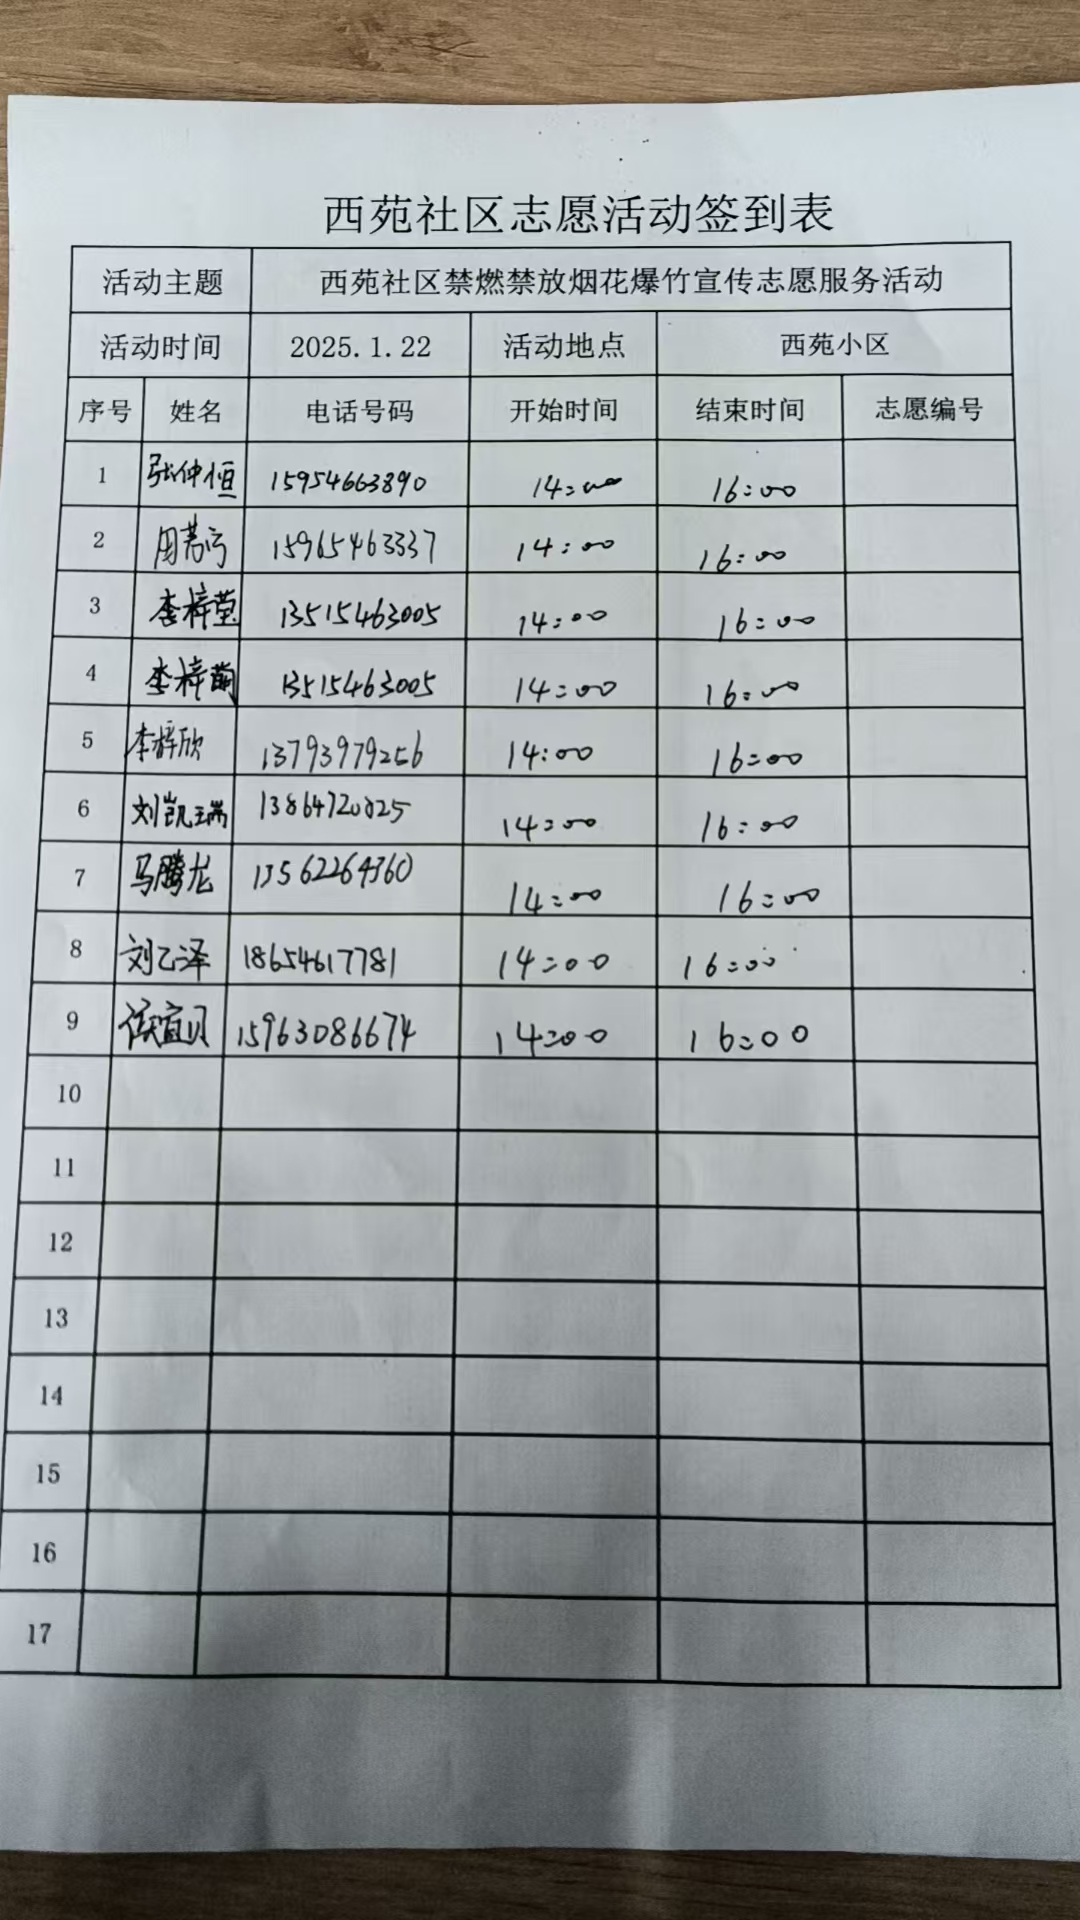 西苑社区志愿活动签到表
活动主题 西苑社区禁燃禁放烟花爆竹宣传志愿服务活动
活动时间 2025.1.22 活动地点 西苑小区
序号 姓名 电话号码 开始时间 结束时间 志愿编号
1 张仲恒 15954663890 14:00 16:00
2 15965463337 14:00 16:00
3 李梓莹 13515463005 14:00 16:00
4 李梓萌 13515463005 14:00 16:00
5 李梓欣 13793979256 14:00 16:00
6 刘凯瑞 13864720825 14:00 16:00
7 马腾龙 13562264360 14:00 16:00
8 刘乙泽 18654617781 14:00 16:00
9 侯宜贝 15963086674 14:00 16:00
10
11
12
13
14
15
16
17